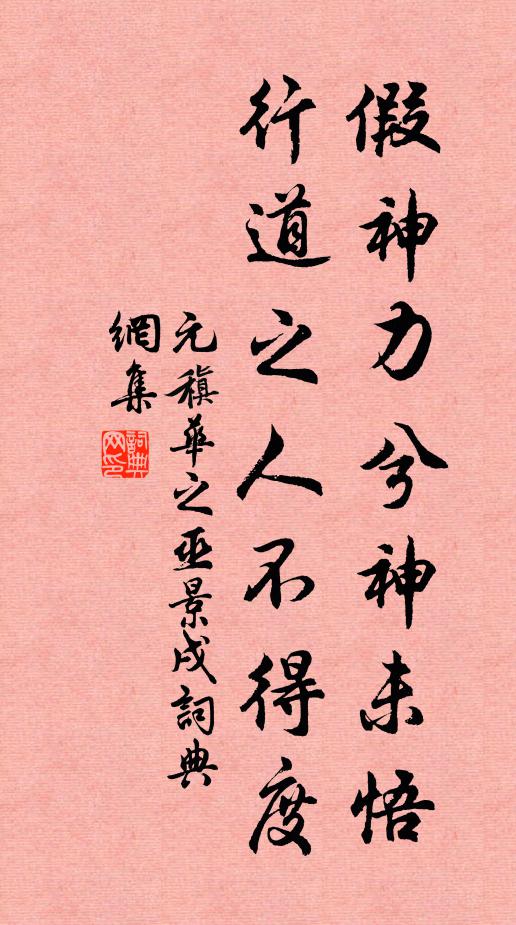 假神力兮神未悟
行道之人不得度
元稹華之巫景戌詞典
網集
詞典
网印